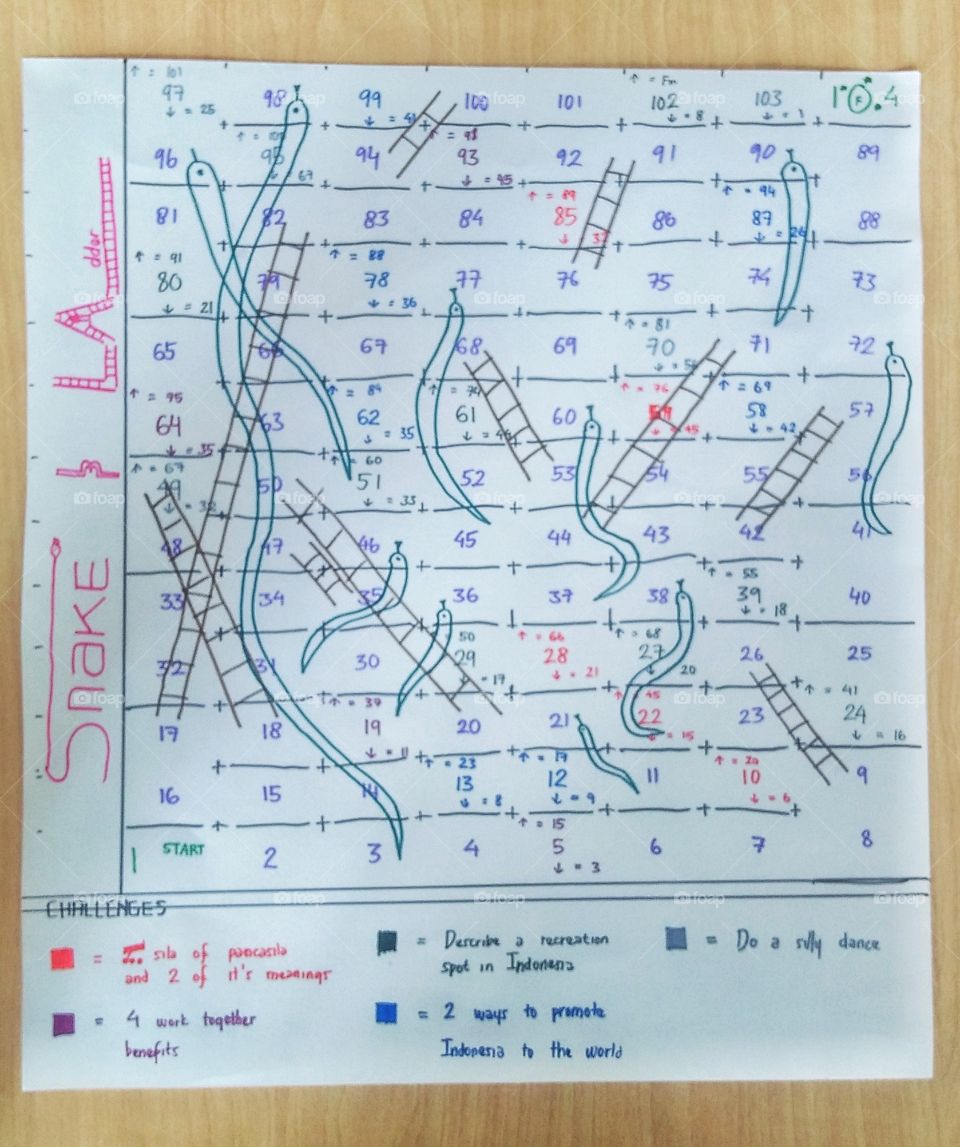 SNAKE & LAdder
↑ = 101
97
↓ = 25
98
99
↓ = 41
100
101
↑ = Fin
102
↓ = 8
103
↓ = 1
104
96
95
↓ = 67
94
↑ = 98
93
↓ = 45
92
91
90
89
81
82
83
84
↑ = 89
85
↓ 37
86
↑ = 94
87
↓ = 26
88
↑ = 91
80
↓ = 21
79
↑ = 88
78
↓ = 36
77
76
75
74
73
65
66
67
68
69
↑ = 81
70
71
72
↑ = 75
64
↓ = 35
63
↑ = 84
62
↓ = 35
61
60
↑ = 76
59
↓ = 45
↑ = 69
58
↓ = 42
57
↑ = 67
49
50
↑ = 60
51
↓ = 33
52
53
54
55
56
48
47
46
45
44
43
42
41
33
34
35
36
37
38
↑ = 55
39
↓ = 18
40
32
31
30
50
29
↓ = 17
↑ = 66
28
↓ = 21
↑ = 68
27
↓ 20
26
25
17
18
↑ = 37
19
↓ = 11
20
21
↑ 45
22
↓ = 15
23
↑ = 41
24
↓ = 16
16
15
14
↑ = 23
13
↓ = 8
↑ = 17
12
↓ = 9
11
↑ = 20
10
↓ = 6
9
1 START
2
3
4
↑ = 15
5
↓ = 3
6
7
8
CHALLENGES
= sila of pancasila
and 2 of it's meanings
= 4 work together
benefits
= Describe a recreation
spot in Indonesia
= 2 ways to promote
Indonesia to the world
= Do a silly dance
foap